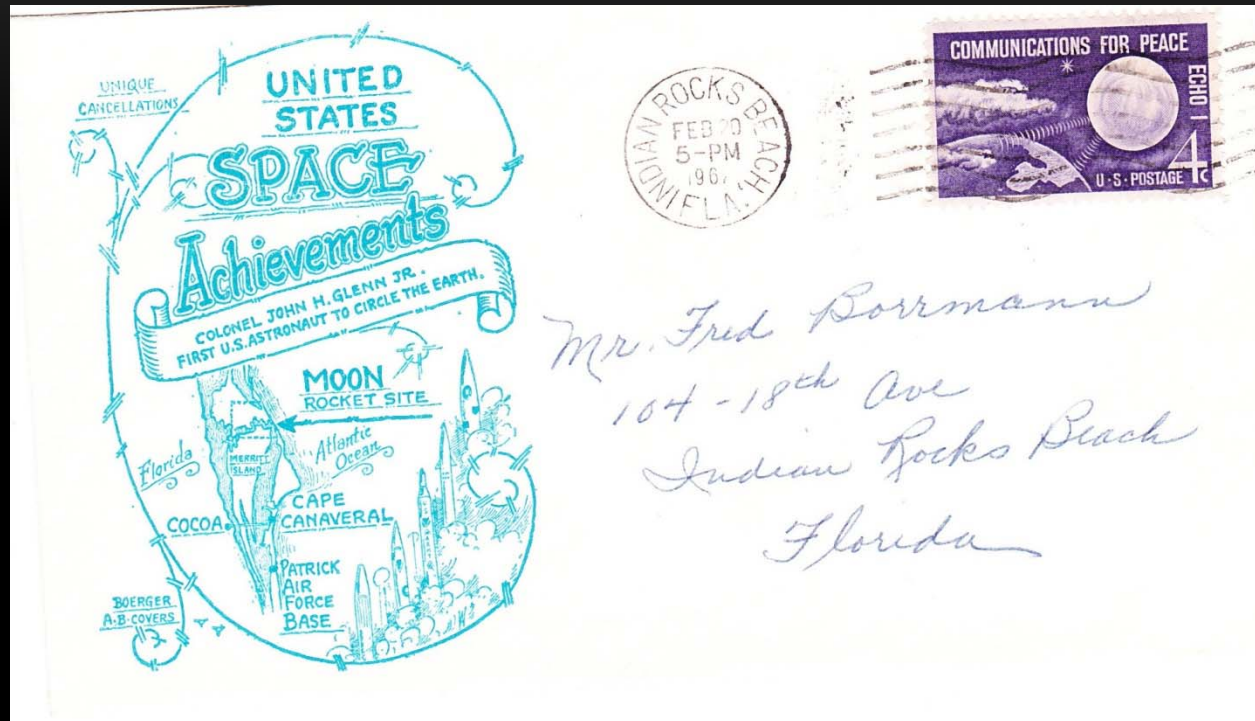 UNIQUE
CANCELLATIONS
UNITED
STATES
SPACE
Achievements
COLONEL JOHN H. GLENN JR.
FIRST U.S. ASTRONAUT TO CIRCLE THE EARTH.
MOON
ROCKET SITE
Florida
MERRITT
ISLAND
Atlantic
Ocean
COCOA
CAPE
CANAVERAL
PATRICK
AIR
FORCE
BASE
BOERGER
A·B·COVERS
2
INDIAN ROCKS BEACH,
FLA.
FEB 20
5-PM
COMMUNICATIONS FOR PEACE
ECHO I
4c
U·S·POSTAGE
Mr. Fred Borrmann
104-18th Ave
Indian Rocks Beach
Florida